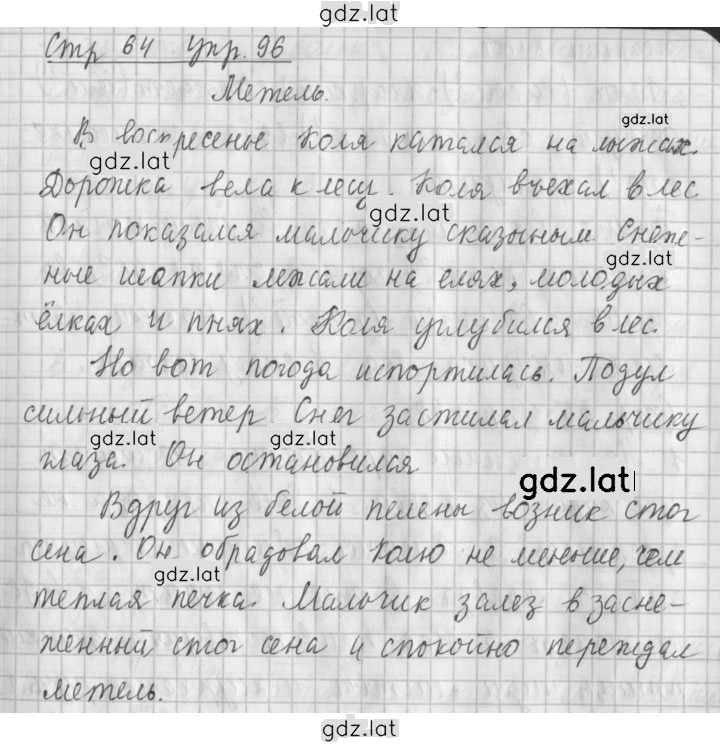 gdz.lat
Стр 64 упр. 96
Метель.
gdz.lat
В воскресенье Коля катался на лыжах.
gdz.lat
Дорожка вела к лесу. Коля въехал в лес
gdz.lat
Он показался мальчику сказочным Снеж-
ные шапки лежали на елях, молодых
ёлках и пнях. Коля углубился в лес.
Но вот погода испортилась. Подул
сильный ветер Снег застилал мальчику
gdz.lat gdz.lat
глаза. Он остановился
gdz.lat
Вдруг из белой пелены возник стог
сена. Он обрадовал Колю не меньше, чем
gdz.lat
теплая печка. Мальчик залез в засне-
женный стог сена и спокойно переждал
метель.
gdz.lat